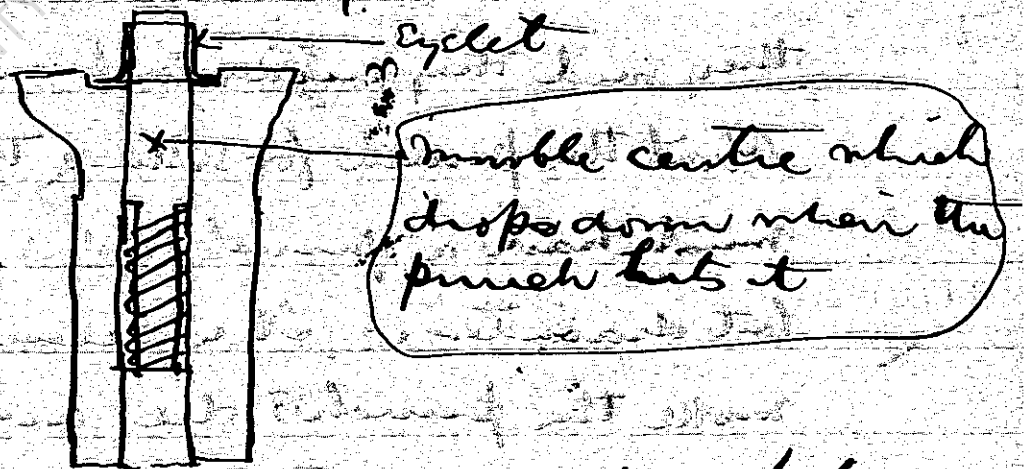 Eyelet
movable centre which
drops down when the
punch hits it